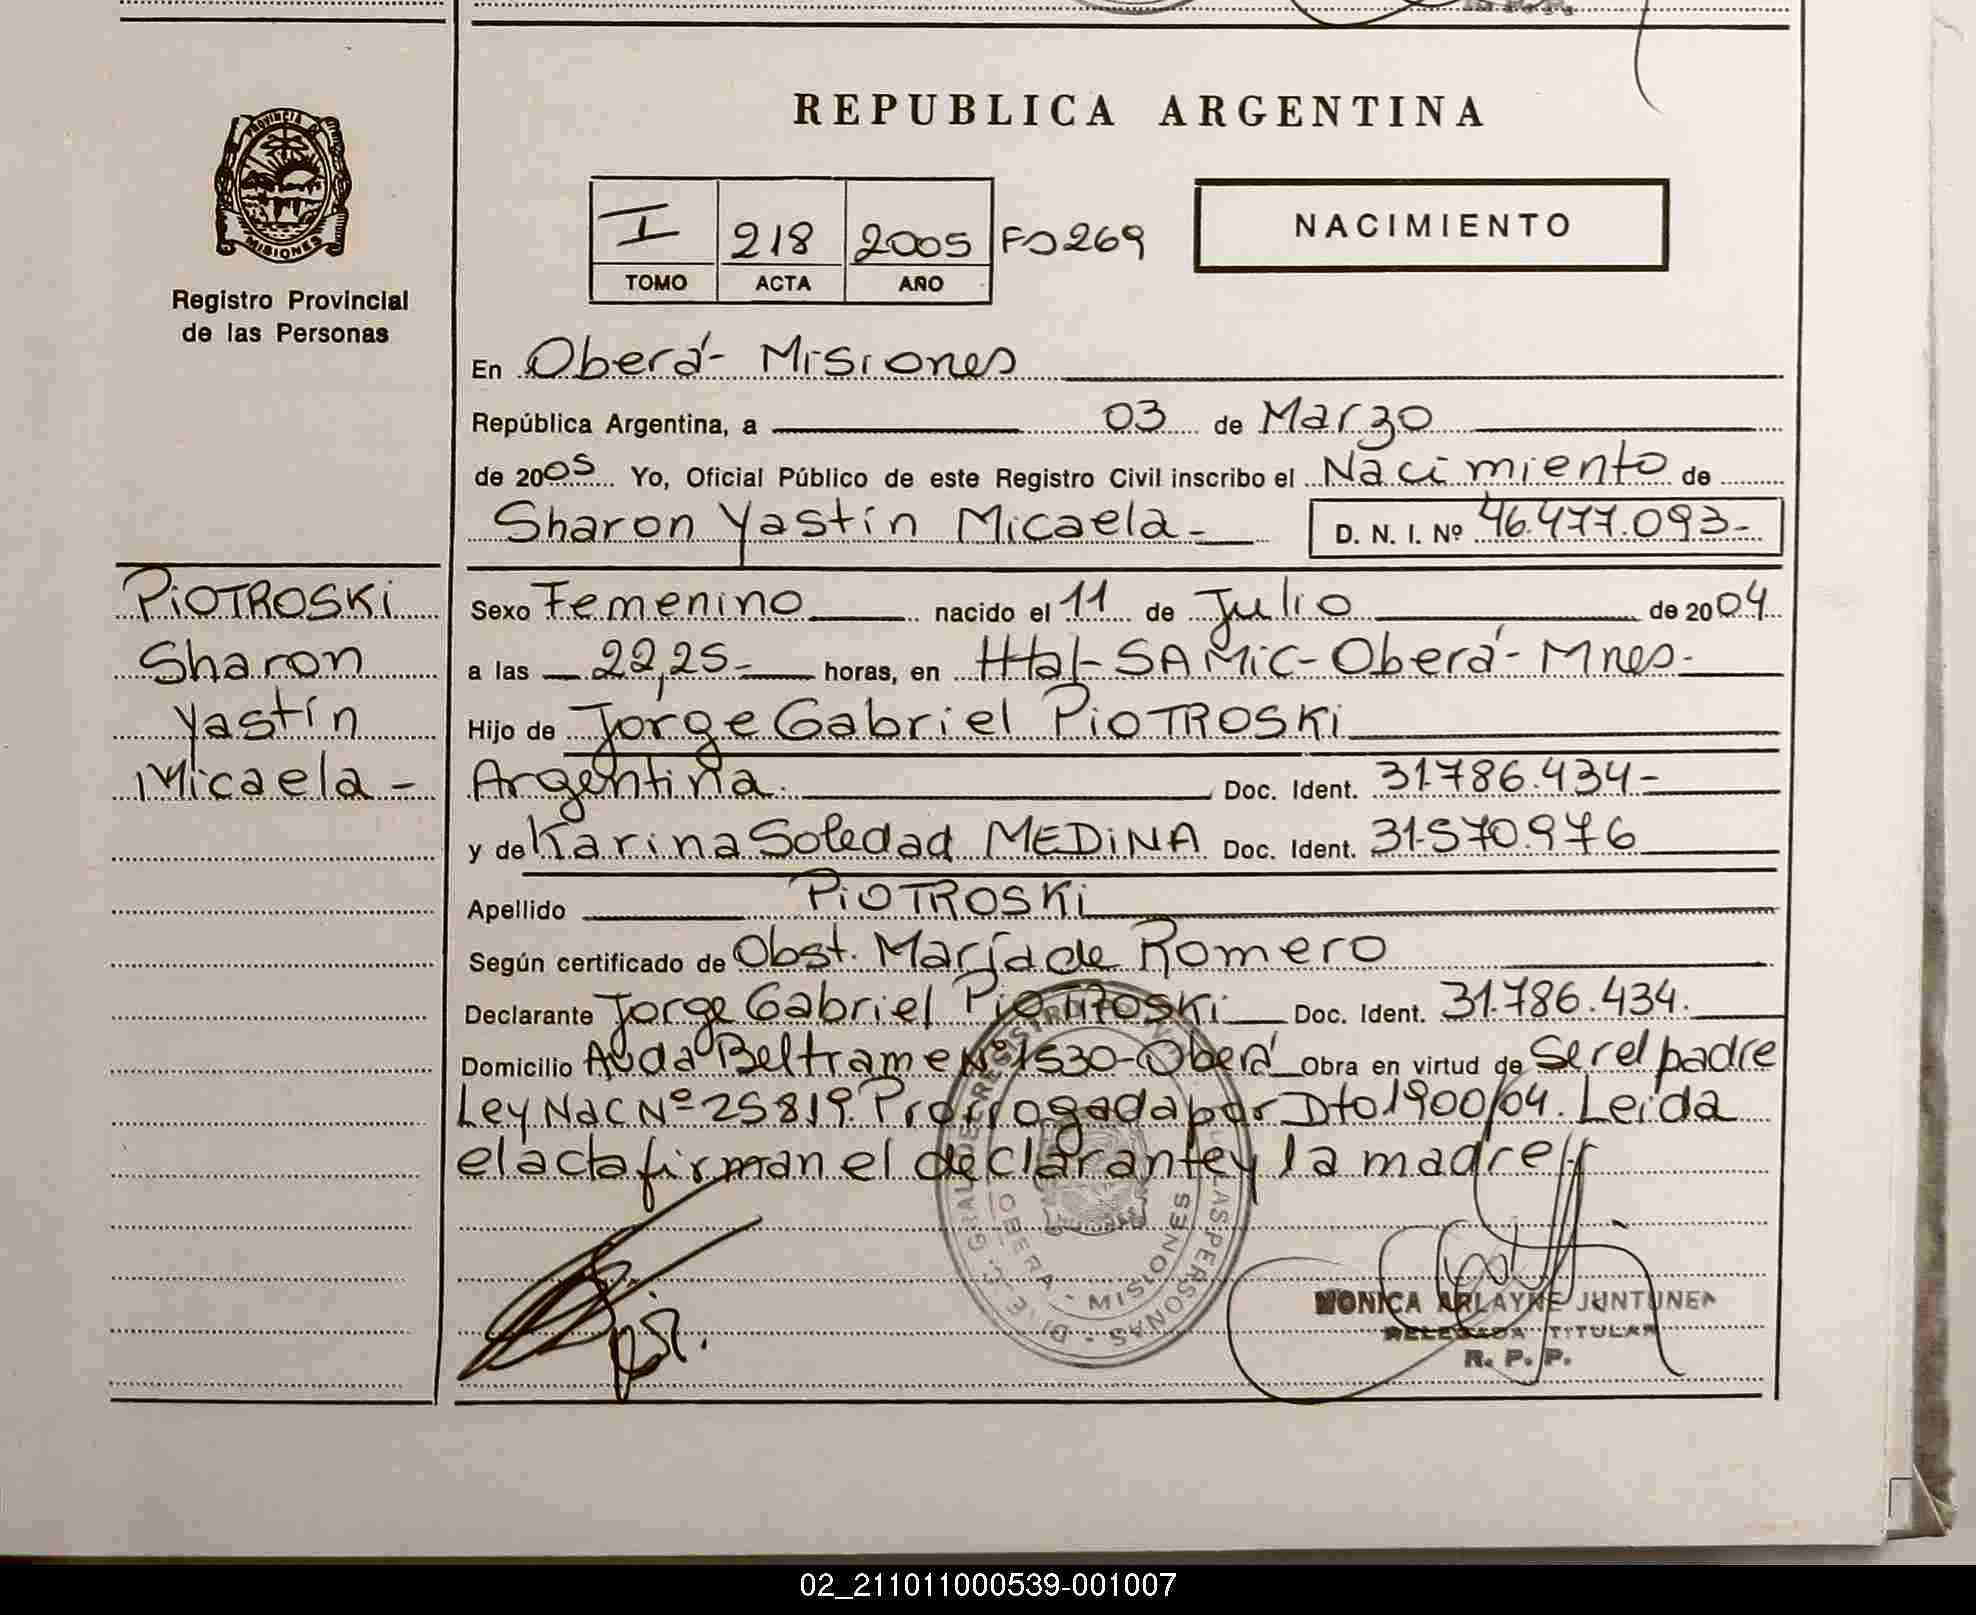 PROVINCIA DE
MISIONES
Registro Provincial
de las Personas
REPUBLICA ARGENTINA
I 218 2005 Fº 269
TOMO ACTA AÑO
NACIMIENTO
En Oberá - Misiones
República Argentina, a 03 de Marzo
de 2005 Yo, Oficial Público de este Registro Civil inscribo el Nacimiento de
Sharon Yastín Micaela - D. N. I. Nº 46.477.093-
PiOTROSKi
Sharon
Yastín
Micaela -
Sexo Femenino nacido el 11 de Julio de 2004
a las 22,25- horas, en Htal-SAMiC-Oberá-Mnes-
Hijo de Jorge Gabriel PiOTROSKi
Argentina. Doc. Ident. 31.786.434-
y de Karina Soledad MEDiNA Doc. Ident. 31.570.976
Apellido PiOTROSKi
Según certificado de Obst. María de Romero
Declarante Jorge Gabriel PiOTROSKi Doc. Ident. 31.786.434.
Domicilio Avda Beltrame Nº 1530-Oberá Obra en virtud de Ser el padre
Ley Nac Nº 25819. Prorrogada por Dto 1900/04. Leída
el acta firman el declarante y la madre
OBERA - MISIONES
MONICA ARLAYNE JUNTUNEN
DELEGADA TITULAR
R. P. P.
02_211011000539-001007